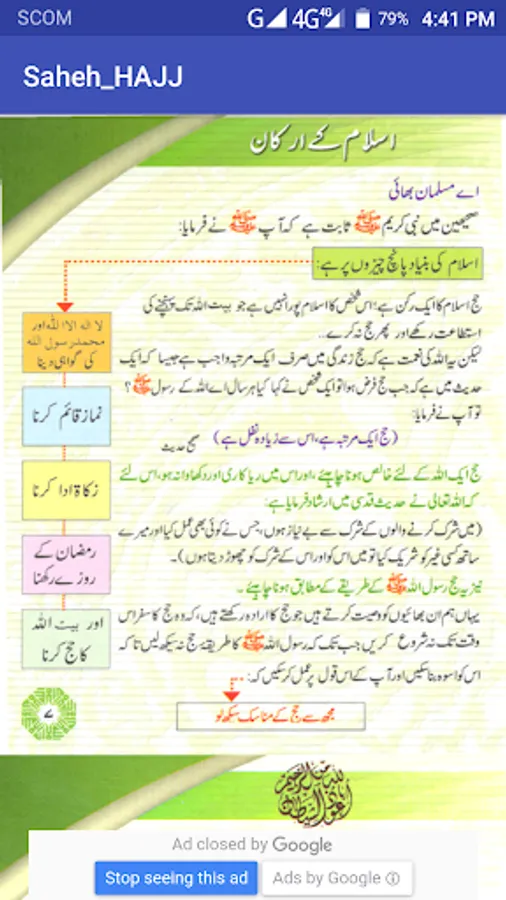 SCOM
G 4G 4G 79% 4:41 PM
Saheh_HAJJ
اسلام کے ارکان
اے مسلمان بھائی
صحیحین میں نبی کریم ﷺ ثابت ہے کہ آپ ﷺ نے فرمایا:
اسلام کی بنیاد پانچ چیزوں پر ہے:
لا اله الا الله اور
محمد رسول الله
کی گواہی دینا
نماز قائم کرنا
زکاۃ ادا کرنا
رمضان کے
روزے رکھنا
اور بیت اللہ
کا حج کرنا
حج اسلام کا ایک رکن ہے؛ اس شخص کا اسلام پورا نہیں ہے جو بیت اللہ تک پہنچنے کی
استطاعت رکھے اور پھر حج نہ کرے..
لیکن یہ اللہ کی نعمت ہے کہ حج زندگی میں صرف ایک مرتبہ واجب ہے جیسا کہ ایک
حدیث میں ہے کہ جب حج فرض ہوا تو ایک شخص نے کہا کیا ہر سال اے اللہ کے رسول ﷺ ؟
تو آپ نے فرمایا:
(حج ایک مرتبہ ہے، اس سے زیادہ نفل ہے) صحیح حدیث
حج ایک اللہ کے لئے خالص ہونا چاہئے، اور اس میں ریا کاری اور دکھاوا نہ ہو، اس لئے
کہ اللہ تعالی نے حدیث قدسی میں ارشاد فرمایا ہے:
(میں شرک کرنے والوں کے شرک سے بے نیاز ہوں، جس نے کوئی بھی عمل کیا اور میرے
ساتھ کسی غیر کو شریک کیا تو میں اس کو اور اس کے شرک کو چھوڑ دیتا ہوں)۔
نیز یہ حج رسول اللہ ﷺ کے طریقے کے مطابق ہونا چاہئے۔
یہاں ہم ان بھائیوں کو وصیت کرتے ہیں جو حج کا ارادہ رکھتے ہیں، کہ وہ حج کا سفر اس
وقت تک نہ شروع کریں جب تک کہ رسول اللہ ﷺ کا طریقۂ حج نہ سیکھ لیں تاکہ
اس کو اسوہ بنا سکیں اور آپ کے اس قول پر عمل کر سکیں کہ:
مجھ سے حج کے مناسک سیکھ لو
۷
Ad closed by Google
Stop seeing this ad
Ads by Google